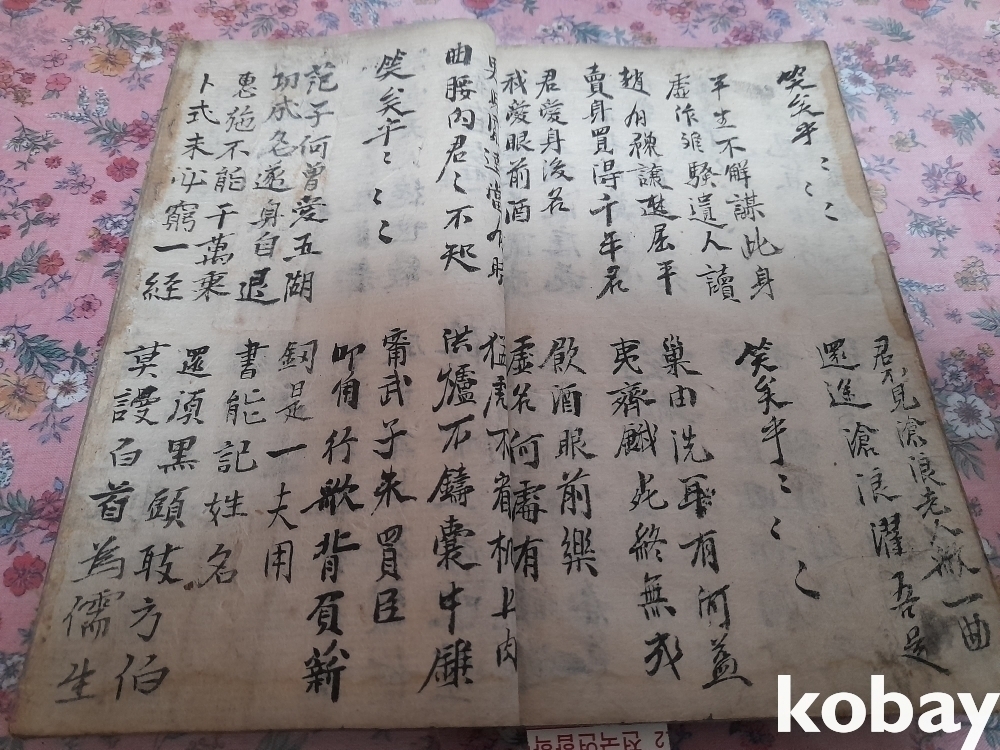 笑矣乎〻〻〻
君不見滄浪老人歌一曲
還道滄浪濯吾足
平生不解謀此身
虛作離騷遺人讀
笑矣乎〻〻〻
趙有豫讓楚屈平
賣身買得千年名
巢由洗耳有何益
夷齊餓死終無成
君愛身後名
我愛眼前酒
飮酒眼前樂
虛名何處有
男兒窮通當有時
曲腰向君〻不知
猛虎不看机上肉
洪爐不鑄囊中錐
笑矣乎〻〻〻
甯武子朱買臣
叩角行歌背負薪
范子何曾愛五湖
功成名遂身自退
劍是一夫用
書能記姓名
惠施不能干萬乘
卜式未必窮一経
還須黑頭取方伯
莫謾白首為儒生
2 전국연합학
kobay